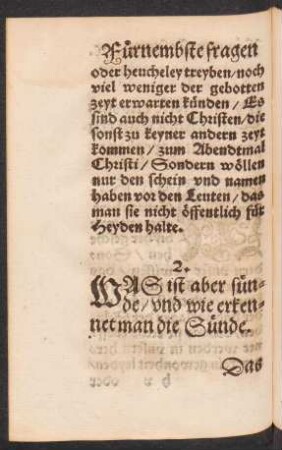 Fürnembste fragen
oder heucheley treyben/noch
viel weniger der gebotten
zeyt erwarten künden/Es
sind auch nicht Christen/die
sonst zu keyner andern zeyt
kommen/zum Abendtmal
Christi/Sondern wöllen
nur den schein vnd namen
haben vor den Leuten/das
man sie nicht öffentlich für
Heyden halte.
2.
WAS ist aber sün-
de/vnd wie erken-
net man die Sünde.
Das